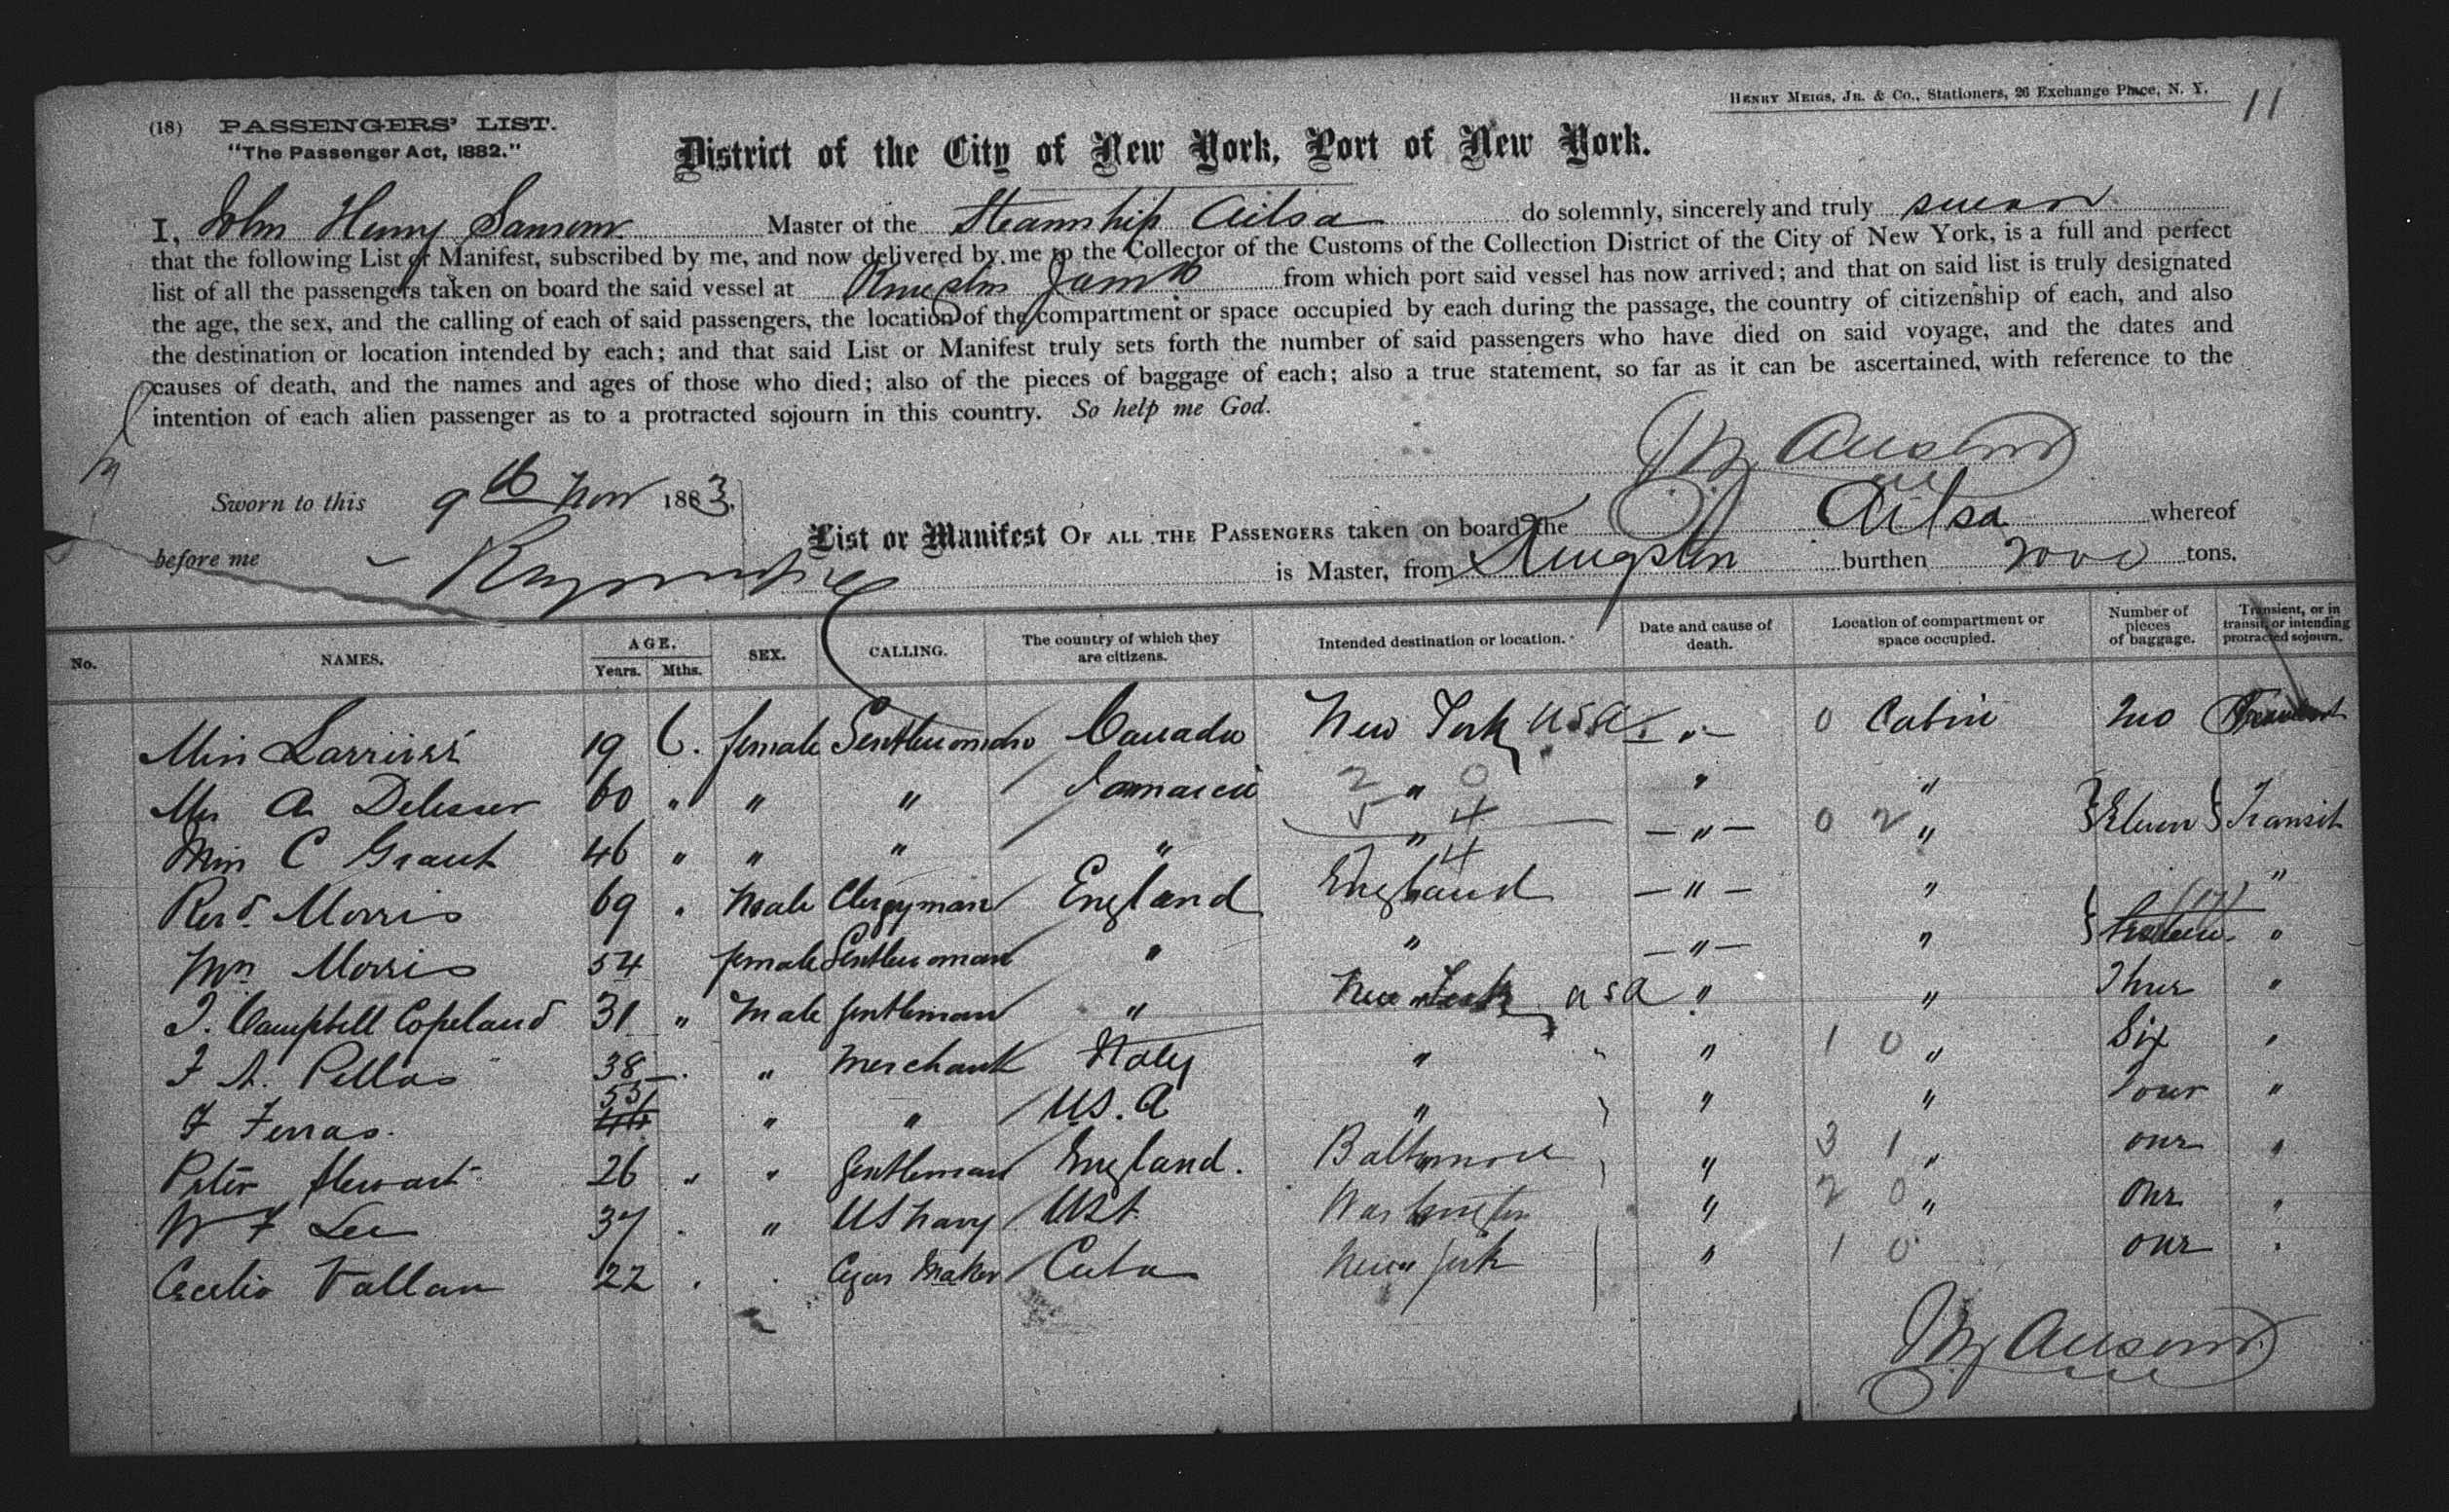 HENRY MEIGS, JR. & Co., Stationers, 26 Exchange Place, N. Y.
11
(18) PASSENGERS' LIST.
"The Passenger Act, 1882."
District of the City of New York, Port of New York.
I, John Henry Sansom Master of the Steamship Ailsa do solemnly, sincerely and truly swear
that the following List or Manifest, subscribed by me, and now delivered by me to the Collector of the Customs of the Collection District of the City of New York, is a full and perfect
list of all the passengers taken on board the said vessel at Kingston from which port said vessel has now arrived; and that on said list is truly designated
the age, the sex, and the calling of each of said passengers, the location of the compartment or space occupied by each during the passage, the country of citizenship of each, and also
the destination or location intended by each; and that said List or Manifest truly sets forth the number of said passengers who have died on said voyage, and the dates and
causes of death, and the names and ages of those who died; also of the pieces of baggage of each; also a true statement, so far as it can be ascertained, with reference to the
intention of each alien passenger as to a protracted sojourn in this country. So help me God.
Sworn to this 9th Nov 1883.
before me
List or Manifest OF ALL THE PASSENGERS taken on board the Ailsa whereof
is Master, from Kingston burthen 2000 tons.
No. NAMES. AGE. Years. Mths. SEX. CALLING. The country of which they are citizens. Intended destination or location. Date and cause of death. Location of compartment or space occupied. Number of pieces of baggage. Transient, or in transit, or intending protracted sojourn.
Miss 19 6. female Gentlewoman Canada New York USA " 0 Cabin Two
A 60 " " " Jamaica 2 " 0 " "
Miss C Grant 46 " " " " 5 4 " — " — 0 2 " Eleven Transit
Revd. Morris 69 . Male Clergyman England 7 4 England — " — " "
Mrs Morris 54 female Gentlewoman " " — " — " (17) "
J. Campbell Copeland 31 " Male Gentleman " New York USA " " Three "
F A. Pellas 38 — . " Merchant Italy " " " 1 0 " Six "
F Ferras. 53 44 " " U.S.A " " " Four "
Peter Stewart 26 " " Gentleman England. Baltimore " 3 1 " one "
W F Lee 37 . " US Navy USA Washington " 2 0 " One "
Cecilio Vallan 22 . . Cigar Maker Cuba New York " 1 0 one .